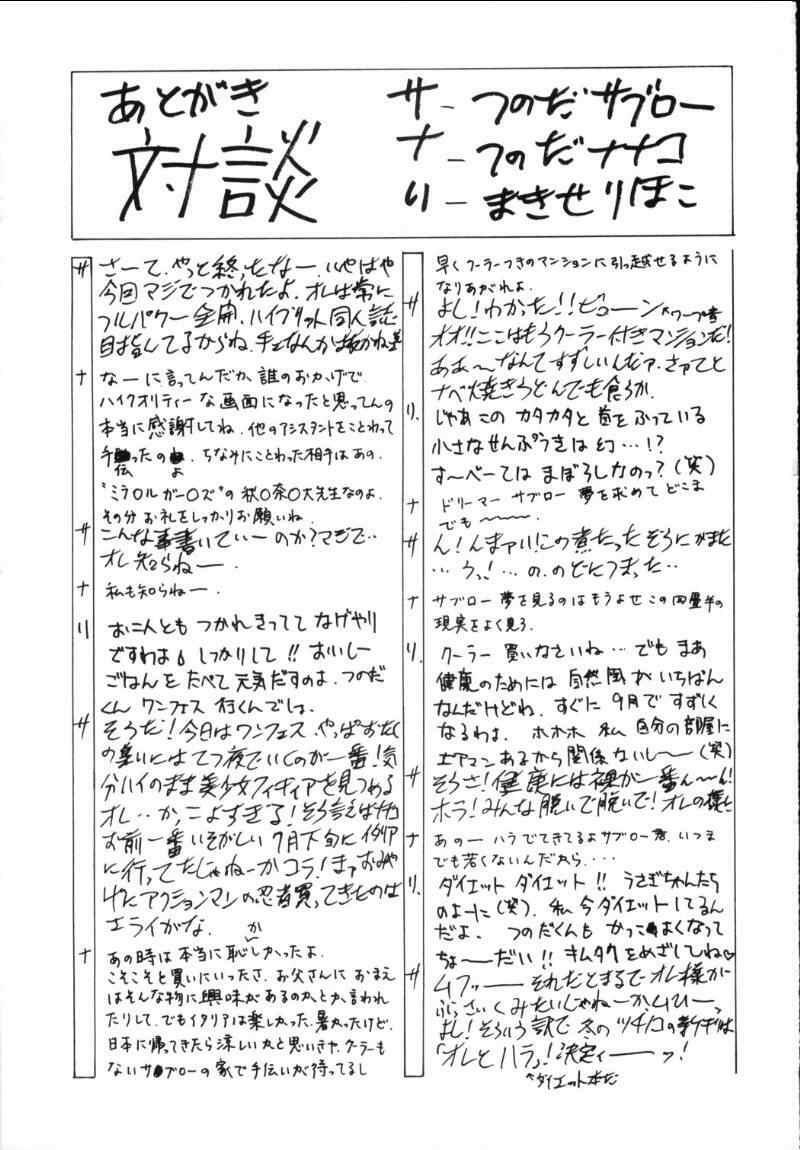 あとがき
対談
サ - つのだサブロー
ナ - つのだナナコ
り - まきせりほこ
サ さーて、やっと終ったなー、いやはや
今回マジでつかれたよ、オレは常に
フルパワー全開、ハイブリット同人誌
目指してるからね、手エなんかは抜かねェ
ナ なーに言ってんだか、誰のおかげで
ハイクオリティーな画面になったと思ってんの
本当に感謝してね。他のアシスタントをことわって
手伝ったのよ。ちなみにことわった相手はあの、
"ミラ〇ルガー〇ズ"の秋〇奈〇大先生なのよ。
その分お礼をしっかりお願いね。
サ こんな事書いていーのか?マジで…
オレ知らねー。
ナ 私も知らねー。
リ お二人とも つかれきってて なげやり
ですわよ。しっかりして!! おいしー
ごはんをたべて元気だすのよ、つのだ
くん ワンフェス 行くんでしょ。
サ そうだ!今日はワンフェス、やっぱおたく
の集いにはてつ夜でいくのが一番!気
分ハイのまま美少女フィギィアを見つめる
オレ…かっこよすぎる!そう言えばナナコ
お前一番いそがしい7月下旬にイタリア
に行ってたじゃねーかコラ!まァおみや
げにアクションマンの忍者買ってきたのは
エライがな。
ナ あの時は本当に恥かしかったよ。
こそこそと買いにいったさ、お父さんにおまえ
はそんな物に興味があるのかとか言われ
たりして、でもイタリアは楽しかった、暑かったけど、
日本に帰ってきたら涼しいかと思いきや、クーラーも
ないサブローの家で手伝いが待ってるし
早くクーラーつきのマンションに引っ越せるように
なりあがれよ。
サ よし!わかった!!ビューン←ワープ音
オオ!!ここはもうクーラー付きマンションだ!
ああ〜なんてすずしいんだァ、さァてと
ナベ焼きうどんでも食うか。
リ、 じゃあこの カタカタと 首をふっている
小さなせんぷうきは幻…!?
す〜べーてはまぼろしなのっ?(笑)
ナ ドリーマー サブロー 夢を求めてどこま
でも〜〜〜。
サ ん!んまァい!この煮たったぞうにがまた
…うっ!…の、のどにつまった…
ナ サブロー夢を見るのはもうよせ この四畳半の
現実をよく見ろ。
リ、 クーラー 買いなさいね… でも まあ
健康のためには 自然風がいちばん
なんだけどね。すぐに 9月で すずしく
なるわよ。 ホホホ 私 自分の部屋に
エアマンあるから関係ないし〜(笑)
サ そうさ!健康には裸が一番ん〜ん!
ホラ!みんな脱いで脱いで!オレの様に
ナ あのー ハラでてきてるよサブロー君、いつま
でも若くないんだから・・・・
リ、 ダイエット ダイエット!! うさぎちゃんたち
のよーに(笑)。私 今ダイエットしてるん
だよ。 つのだくんも かっこよくなって
ちょーだい!! キムタクをめざしてね♡
サ ムフッー それだとまるでオレ様が
ぶさいくみたいじゃねーかムひーっ
よし!そういう訳で 冬のツチノコの新刊は
「オレとハラ」!決定ィーーッ!
^ダイエット本だ